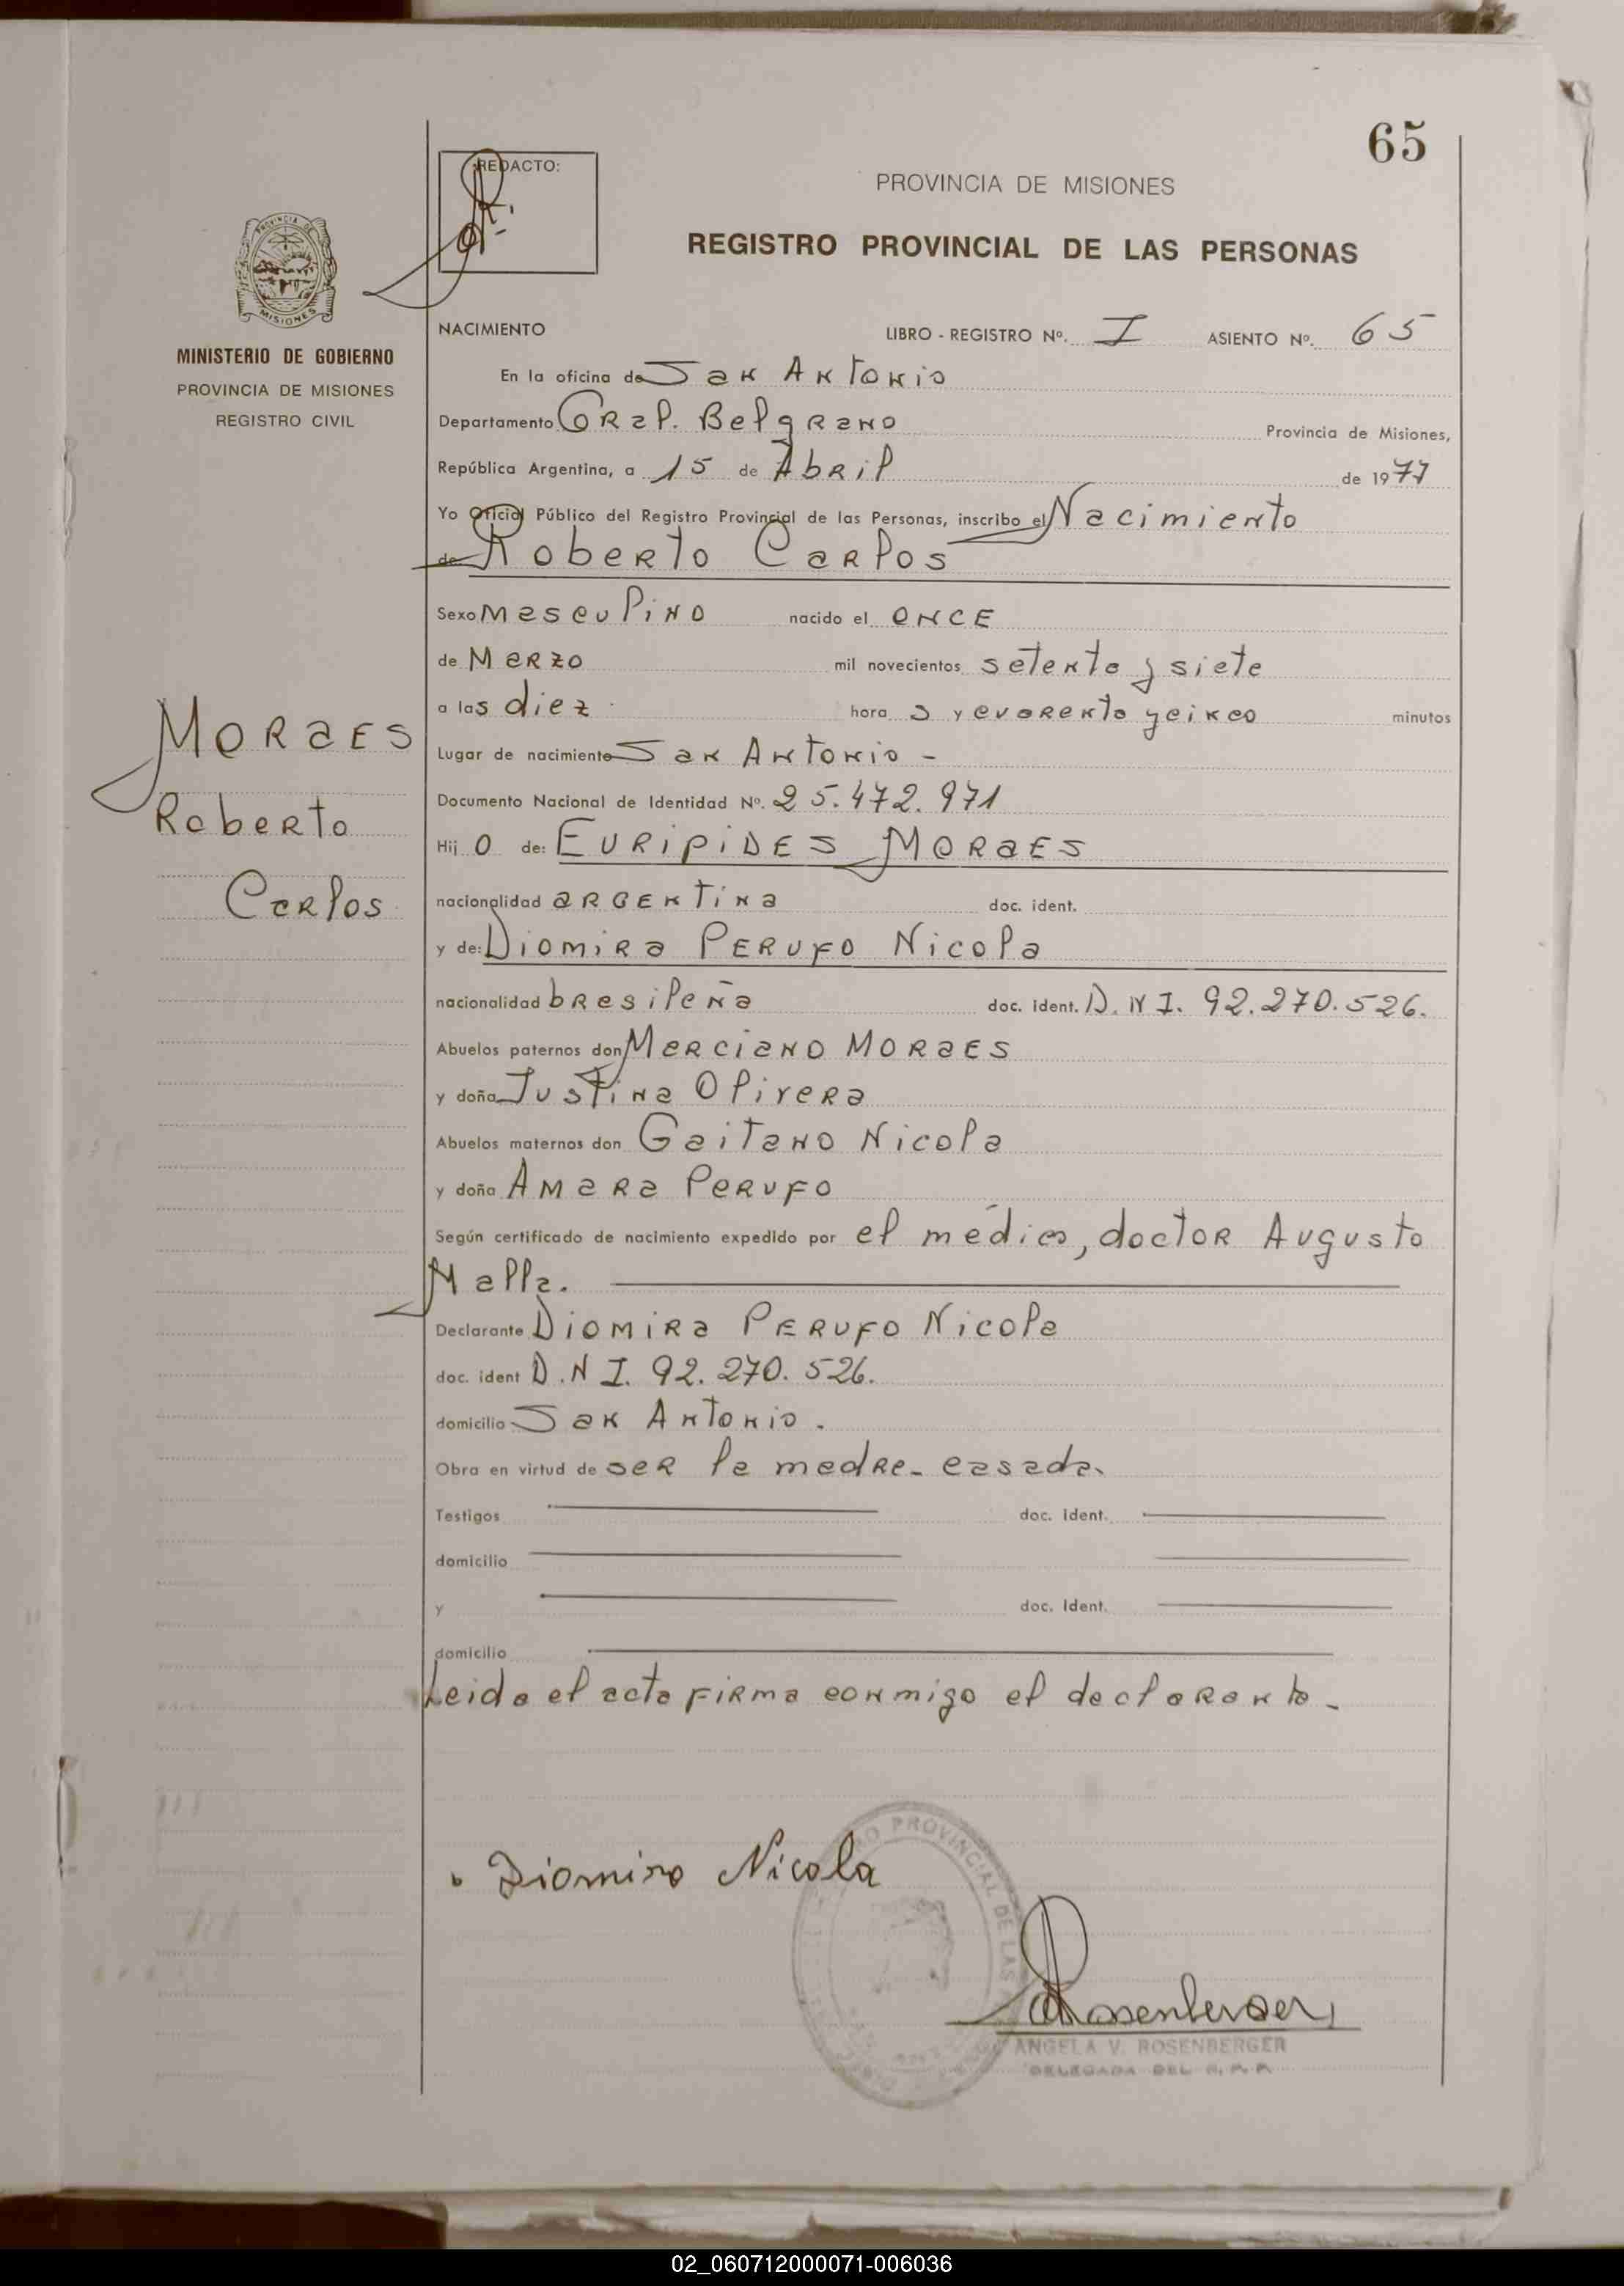 65
REDACTO:
PROVINCIA DE MISIONES
REGISTRO PROVINCIAL DE LAS PERSONAS
PROVINCIA DE
MISIONES
MINISTERIO DE GOBIERNO
PROVINCIA DE MISIONES
REGISTRO CIVIL
NACIMIENTO LIBRO - REGISTRO Nº. I ASIENTO Nº. 65
En la oficina de San Antonio
Departamento Gral. Belgrano Provincia de Misiones,
República Argentina, a 15 de Abril de 1977
Yo Oficial Público del Registro Provincial de las Personas, inscribo el Nacimiento
de Roberto Carlos
Sexo masculino nacido el ONCE
de Marzo mil novecientos setenta y siete
a las diez hora s y cuarenta y cinco minutos
Moraes
Roberto
Carlos
Lugar de nacimiento San Antonio -
Documento Nacional de Identidad Nº. 25.472.971
Hij o de: EURIPIDES MORAES
nacionalidad argentina doc. ident.
y de: Diomira Perufo Nicola
nacionalidad brasileña doc. ident. D.N I. 92.270.526.
Abuelos paternos don Marciano Moraes
y doña Justina Olivera
Abuelos maternos don Gaitano Nicola
y doña Amara Perufo
Según certificado de nacimiento expedido por el médico, doctor Augusto
Malla.
Declarante Diomira Perufo Nicola
doc. ident D.N I. 92.270.526.
domicilio San Antonio.
Obra en virtud de ser la madre- casada.
Testigos doc. ident.
domicilio
y doc. Ident.
domicilio
Leida el acta firma conmigo el declarante-
Diomira Nicola
PROVINCIAL DE LAS
Rosenberger
ANGELA V. ROSENBERGER
DELEGADA DEL R. P. P.
02_060712000071-006036